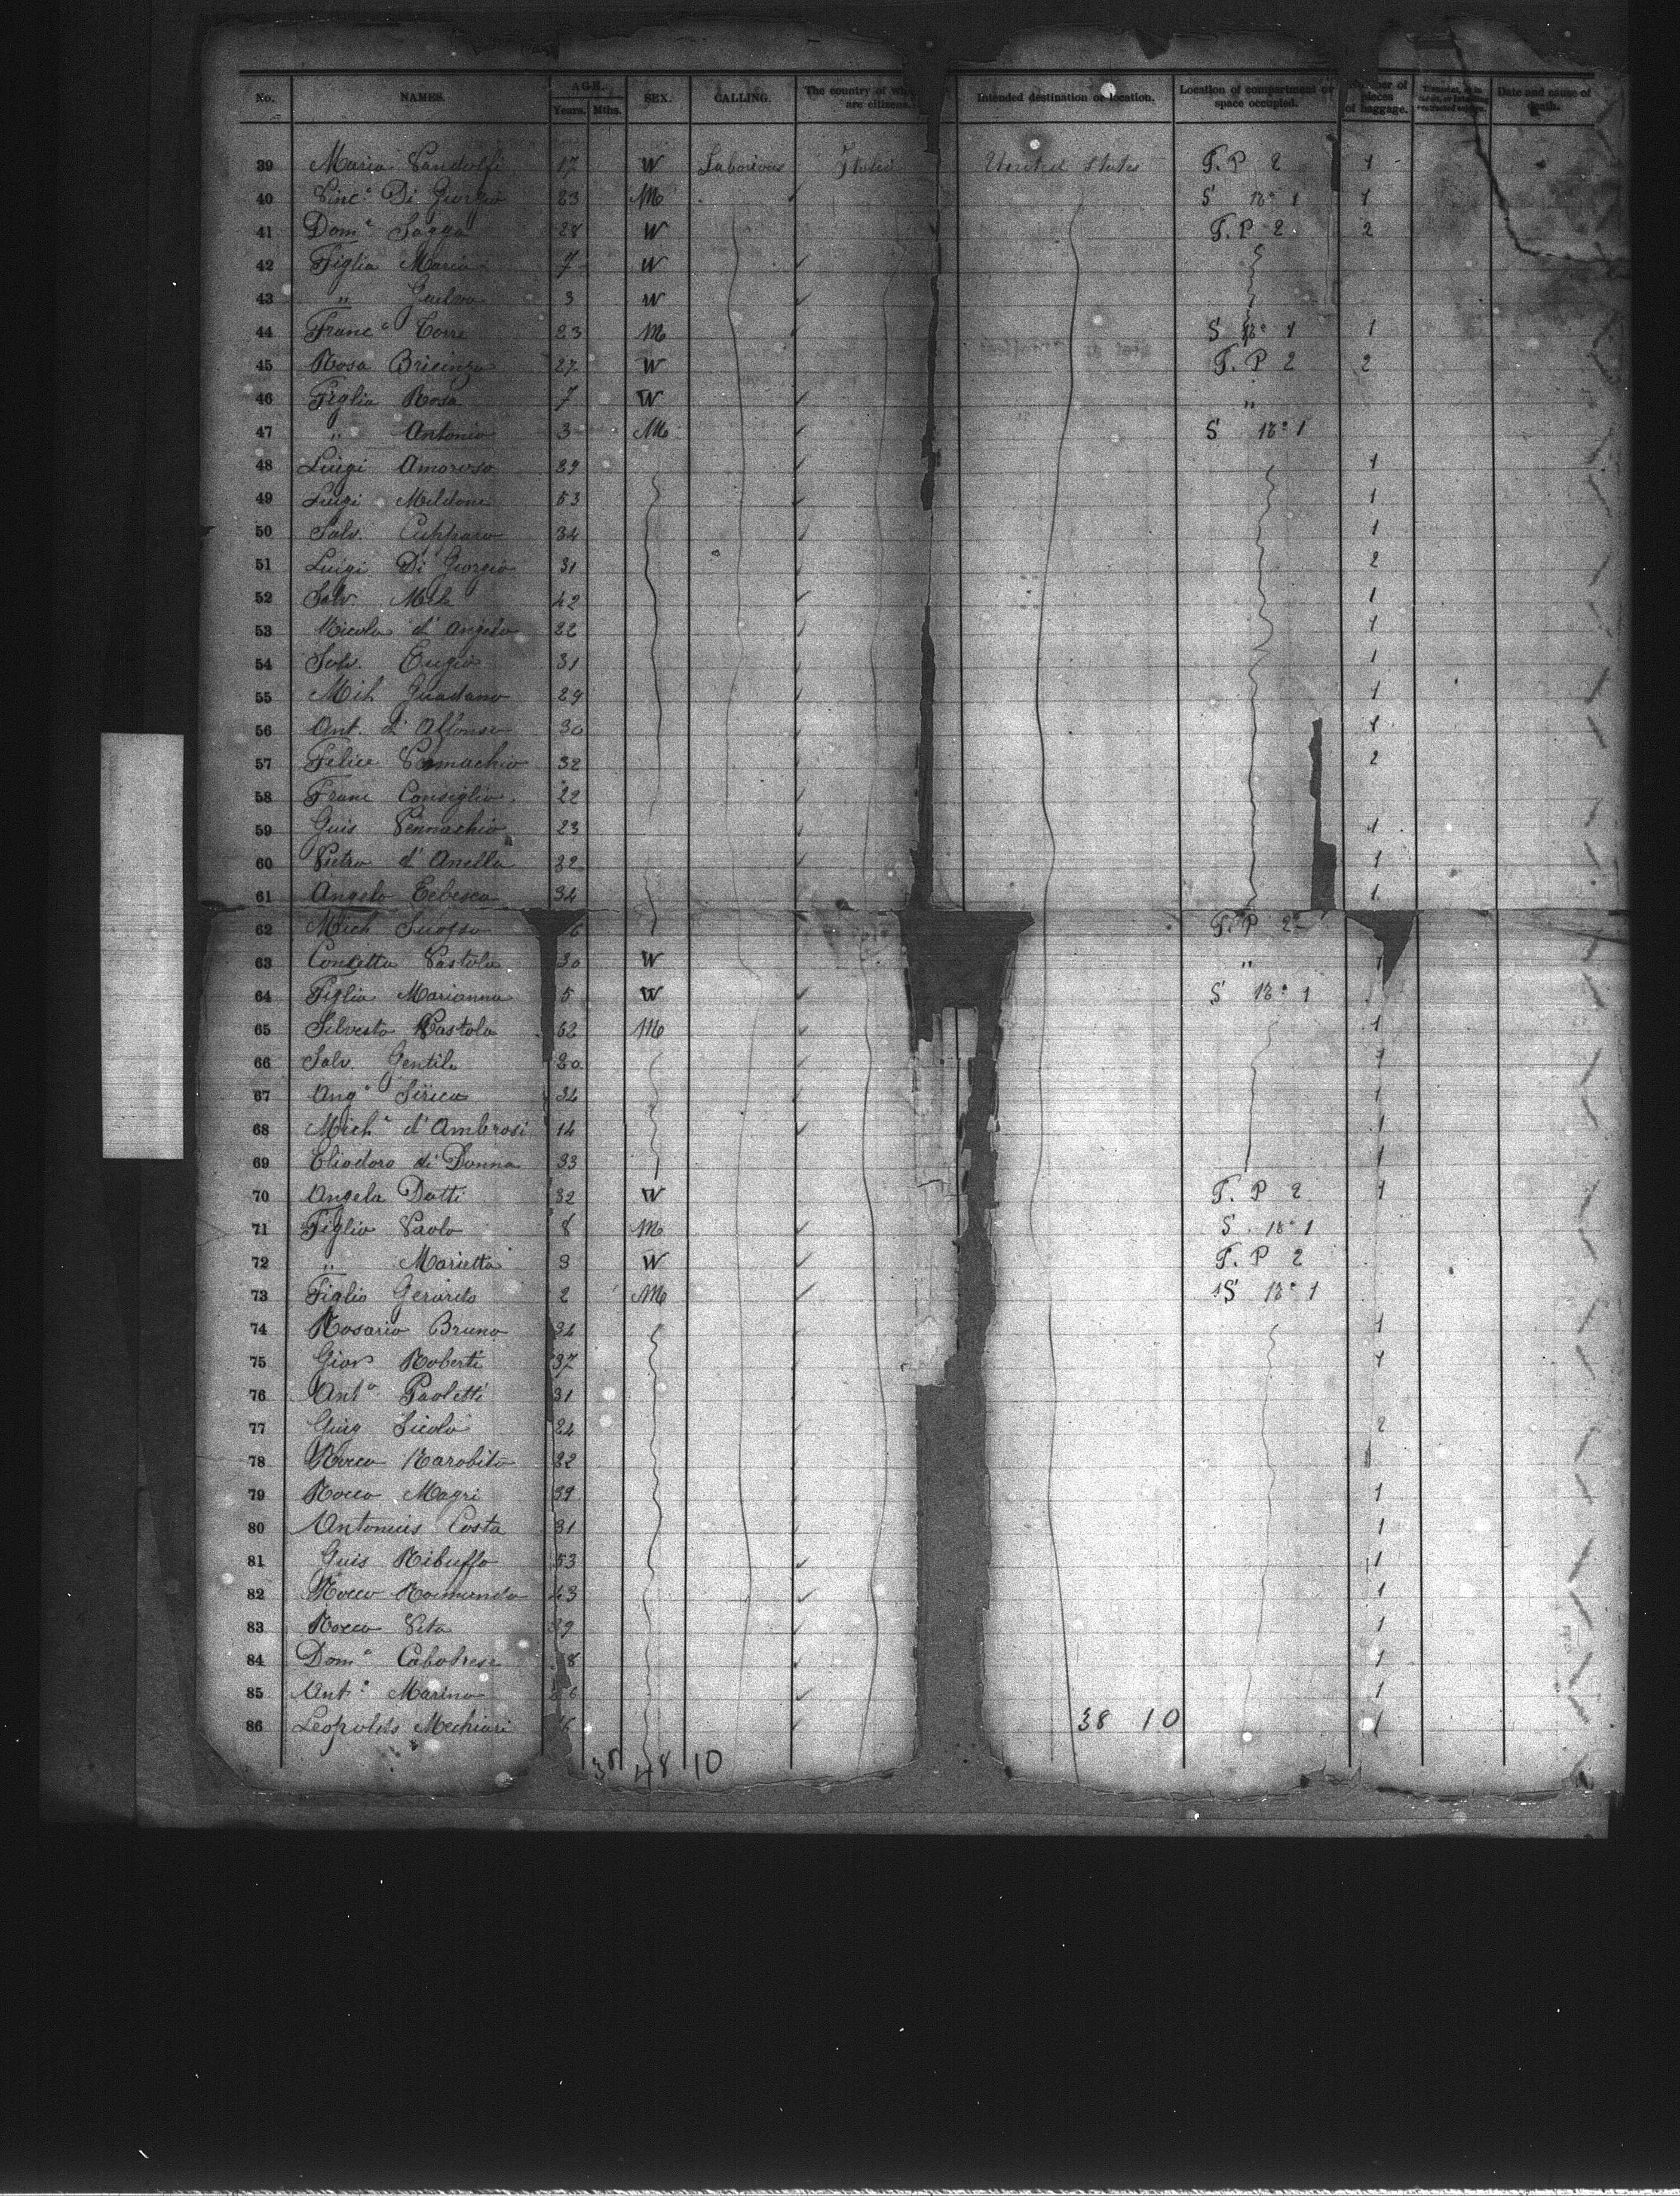 No. NAMES. AGE. Years. Mths. SEX. CALLING. The country of are citizens. Intended destination or location. Location of compartment or space occupied. Number of pieces of baggage. Date and cause of death.
39 Maria Pandolfi 17 W Italia United States T. P 2 1
40 Vinc° Di Giorgio 23 M S 18° 1 1
41 Dom° 28 W T. P 2 2
42 Figlia Maria 7 W
43 " 3 W
44 Franc° Torre 23 M S 18° 1 1
45 Rosa 27 W T. P 2 2
46 Figlia Rosa 7 W "
47 " Antonio 3 M S 18° 1
48 Luigi Amoroso 29 1
49 Luigi Meldoni 53 1
50 Salv. Cupparo 34 1
51 Luigi Di Giorgio 31 2
52 Salv. Mele 42 1
53 Nicola d'Angelo 32 1
54 Salv. 31 1
55 Mich Guadano 29 1
56 Ant. d'Alfonso 30 1
57 Felice Pennachio 32 2
58 Franc Consiglio 22
59 Guis Pennachio 23 1
60 Pietro d'Anella 32 1
61 Angelo 34 1
62 Mich 6 T. P 2
63 Concetta Pastola 30 W " 1
64 Figlia Marianna 5 W S 18° 1
65 Silvesto Pastola 62 M 1
66 Salv. Gentile 30 1
67 Ang° Sirica 34 1
68 Mich° d'Ambrosi 14 1
69 Eliodoro di Donna 33 1
70 Angela Dotti 32 W T. P 2 1
71 Figlio Paolo 8 M S 18° 1
72 " Marietta 3 W T. P 2
73 Figlio Gerardo 2 M S 18° 1
74 Rosario Bruno 34 1
75 Giov Roberti 37 1
76 Ant° Paoletti 31
77 Guis Sicola 24 2
78 Rocco Marobito 32 1
79 Rocco Magri 39 1
80 Antonius Costa 31 1
81 Guis Ribuffo 53 1
82 Rocco Raimondo 43 1
83 Rocco Vita 29 1
84 Dom° Calabrese 8 1
85 Ant° Marino 26 1
86 Leopoldo Mechiari 6 38 10 1
38 48 10